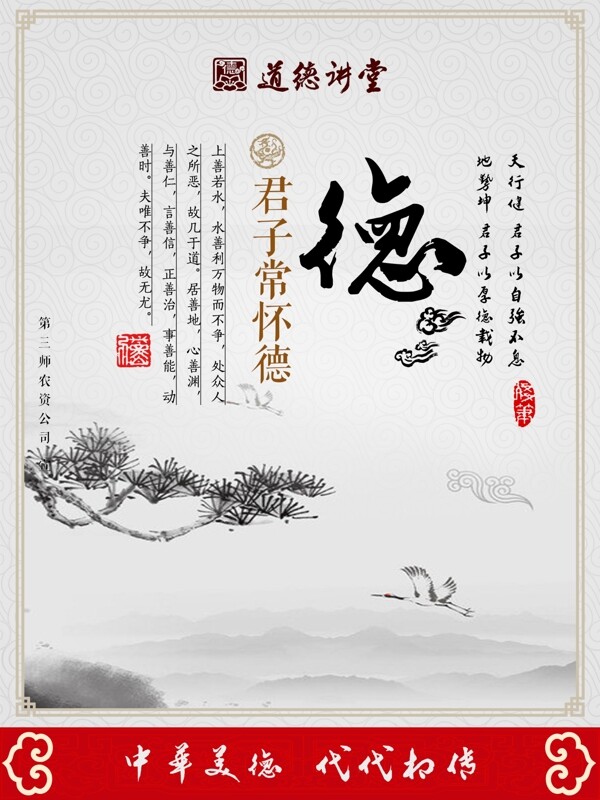 道德讲堂
天行健 君子以自強不息
地勢坤 君子以厚德載物
德
君子常怀德
上善若水，水善利万物而不争，处众人
之所恶，故几于道。居善地，心善渊，
与善仁，言善信，正善治，事善能，动
善时。夫唯不争，故无尤。
第三师农资公司
中華美德 代代相传